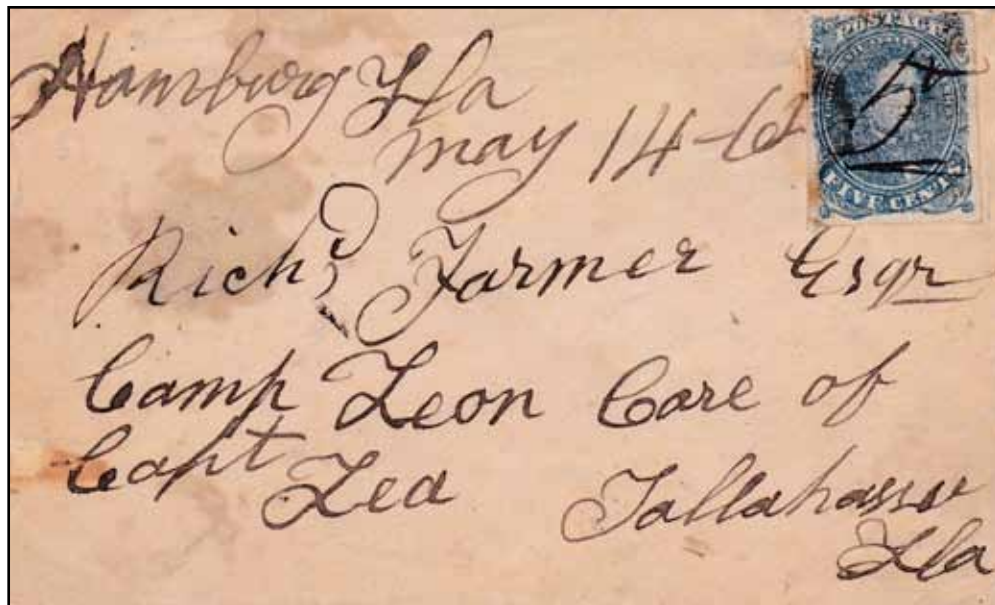 Hamburg Fla
may 14-62
5
FIVE CENTS
Richd Farmer Esqr
Camp Leon Care of
Capt Lea Tallahassee
Fla